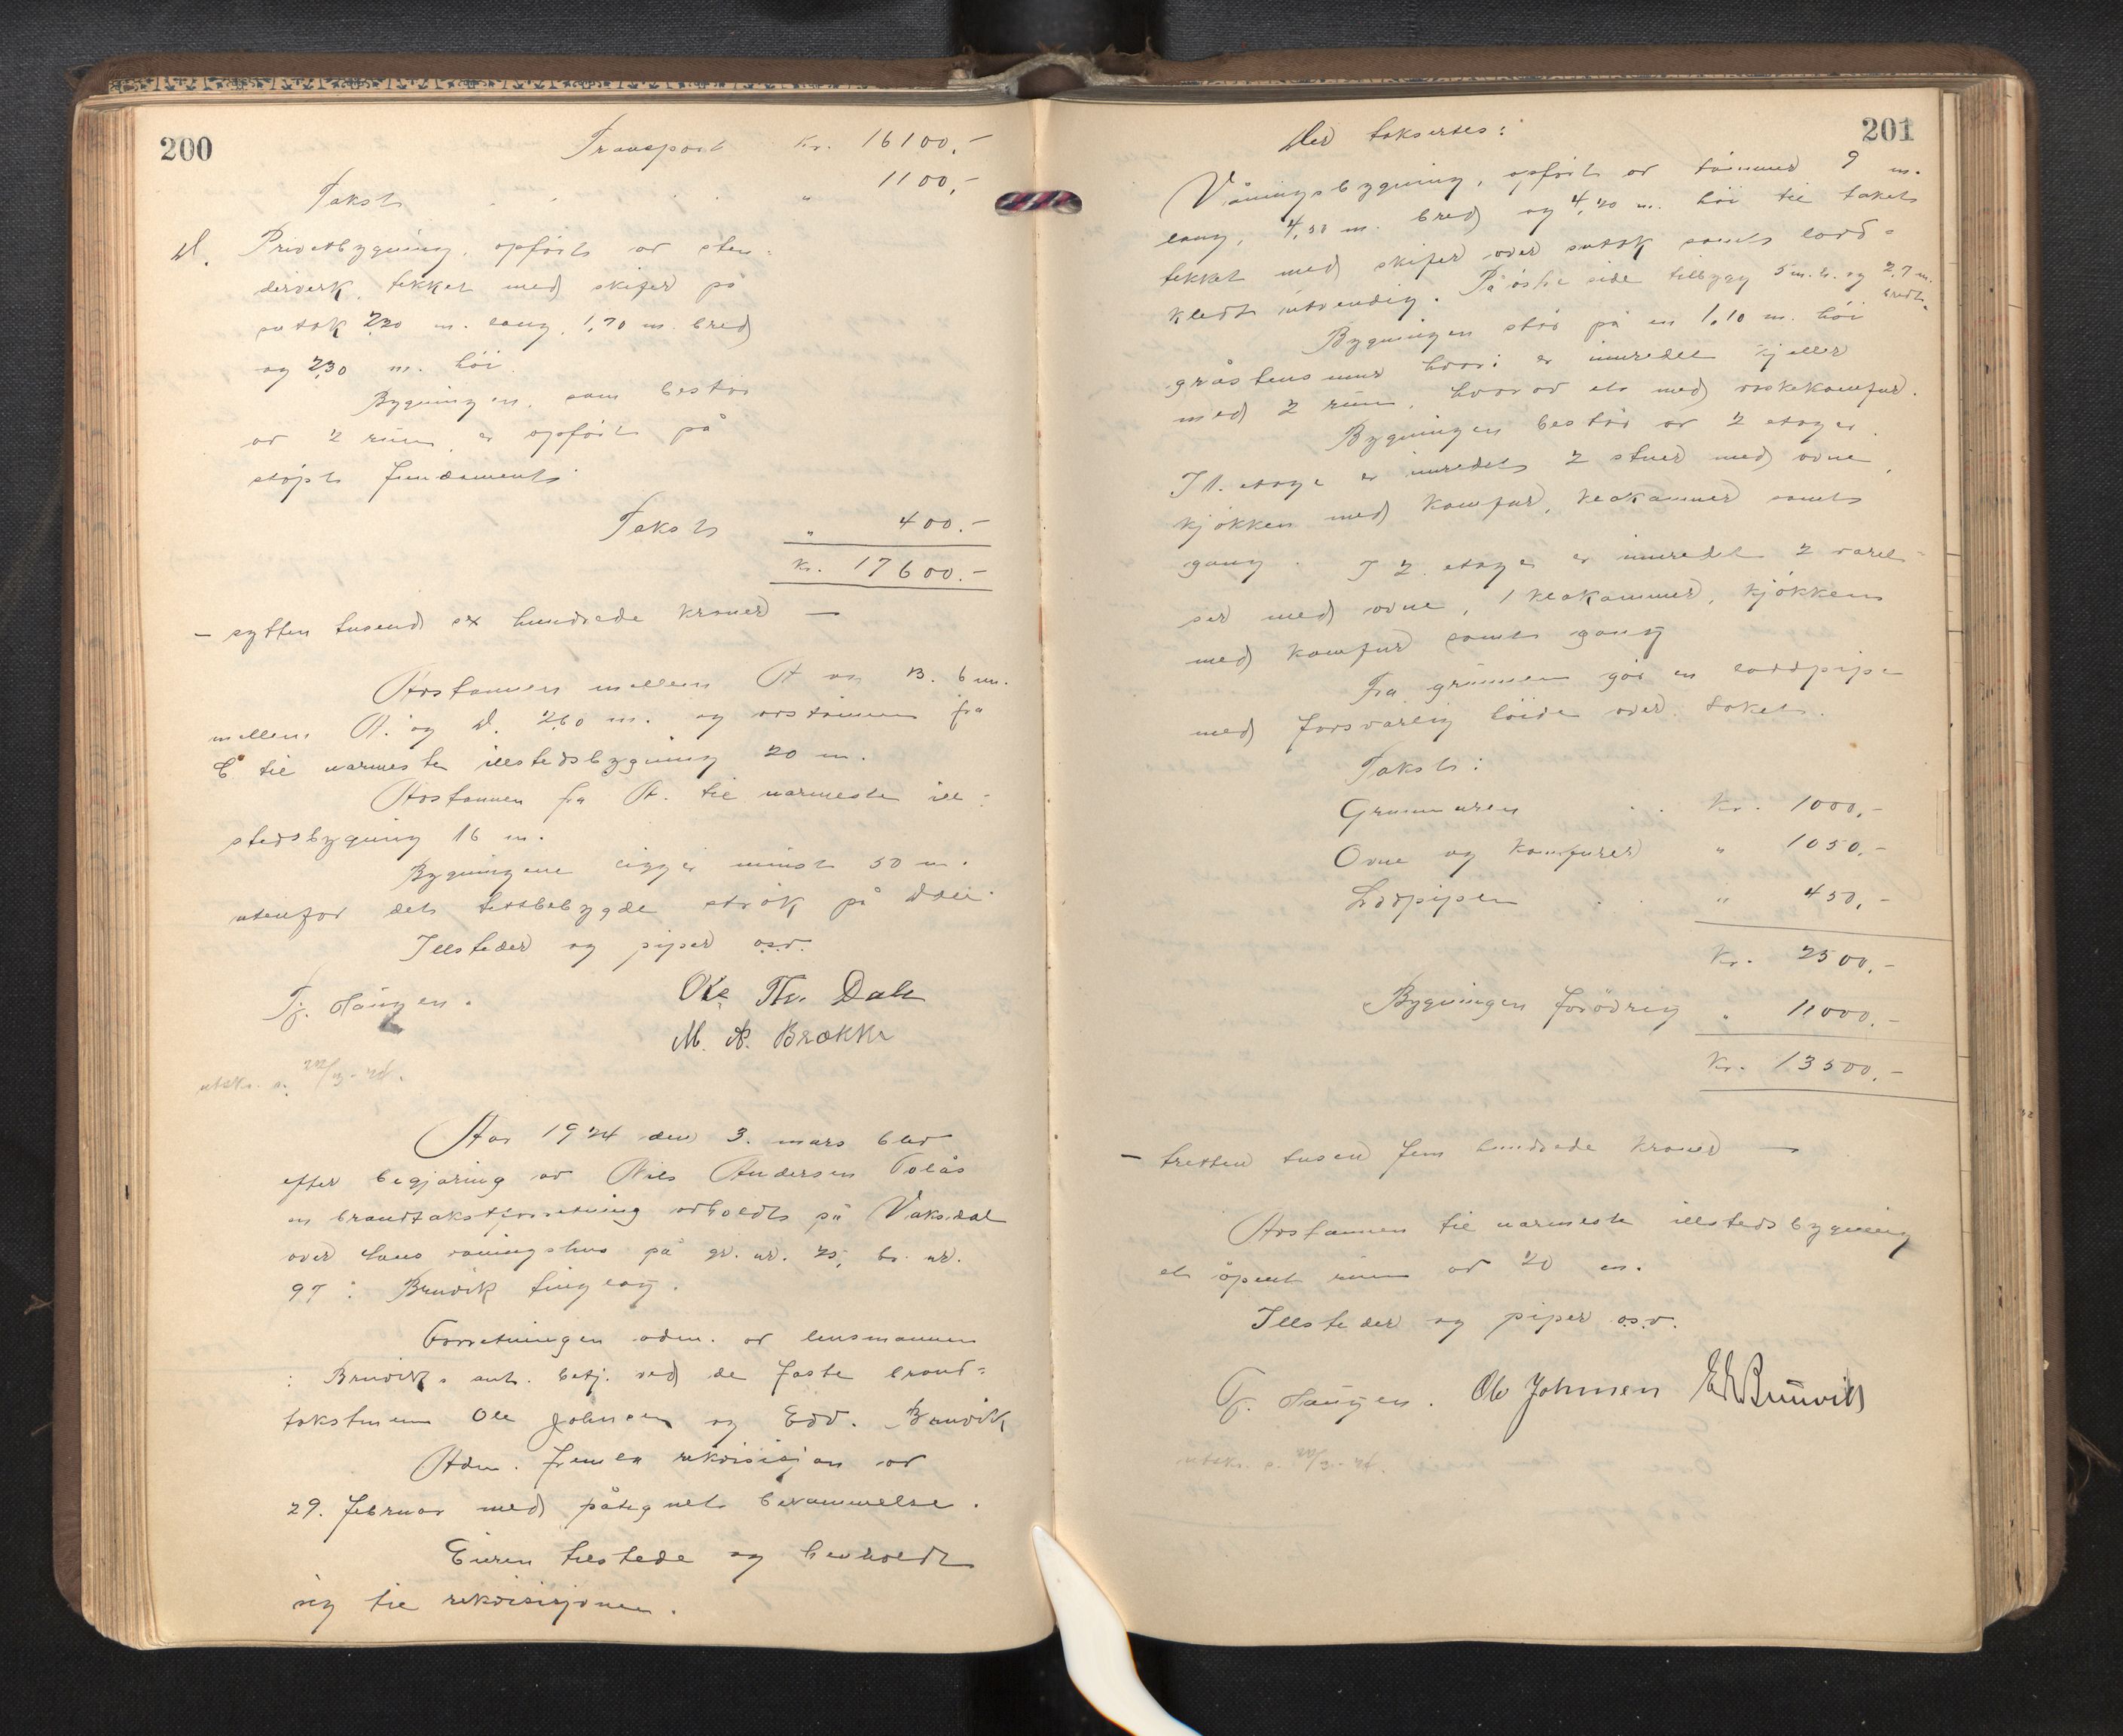 200
Transport Kr. 16100,-
Takst " 1100,-
D. Privetbygning, opført av sten-
derverk, tekket med skifer på
sutak 2,20 m. lang, 1,70 m. bred
og 2,30 m. höi.
Bygningen, som består
av 2 rum er opført på
støpt fundament.
Takst " 400.-
Kr. 17600.-
- sytten tusend sex hundrede kroner -
Avstannen mellem A og B. 6 m.
mellem A. og D. 2,60 m. og avstannen fra
C til nærmeste illstedsbygning 20 m.
Avstannen fra A. til nærmeste ill-
stedsbygning 16 m.
Bygningene ligger minst 50 m.
utenfor det tettbebygde strök på Dale.
Illsteder og piper o.s.v.
Tj. Haugen.
Ole Th. Dale
M. A. Brække
utskr. s. 22/3-24.
Aar 1924 den 3. mars blev
efter begjæring av Nils Andersen Tolås
en brandtakstforretning avholdt på Vaksdal
over hans våningshus på gr. nr. 25, br. nr.
97 i Bruvik tinglag.
Forretningen adm. av lensmannen
i Bruvik's aut. betj. ved de faste brand-
takstmenn Ole Johnsen og Edv. Bruvik
Adm. fremla rekvisisjon av
29. februar med påtegnet berammelse.
Eieren tilstede og henholdt
sig til rekvisisjonen.
201
Der taksertes:
Våningsbygning, opført av tømmer 9 m.
lang, 4,50 m. bred og 4,20 m. höi til taket
tekket med skifer over sutak samt bord-
kledt utvendig. På østre side tilbygg 5 m. l. og 2,7 m.
bredt.
Bygningen står på en 1,10 m. höi
gråstensmur hvori er innredet kjeller
med 2 rum, hvorav et med vaskekomfur.
Bygningen består av 2 etager.
I 1. etage er innredet 2 stuer med ovne,
kjøkken med komfur, kleskammer samt
gang. I 2. etage er innredet 2 værel-
ser med ovne, 1 kleskammer, kjøkken
med komfur samt gang
Fra grunnen går en loddpipe
med forsvarlig höide over taket.
Takst:
Grunnmuren . . Kr. 1000,-
Ovne og komfurer " 1050.-
Lodpipen . . " 450,-
Kr. 2500,-
Bygningen forøvrig " 11000,-
Kr. 13500,-
- tretten tusen fem hundrede kroner -
Avstannen til nærmeste illstedsbygning
et åpent rum av 20 m.
Illsteder og piper o.s.v.
Tj. Haugen. Ole Johnsen Edv Bruvik
utskr. s. 22/3-24.